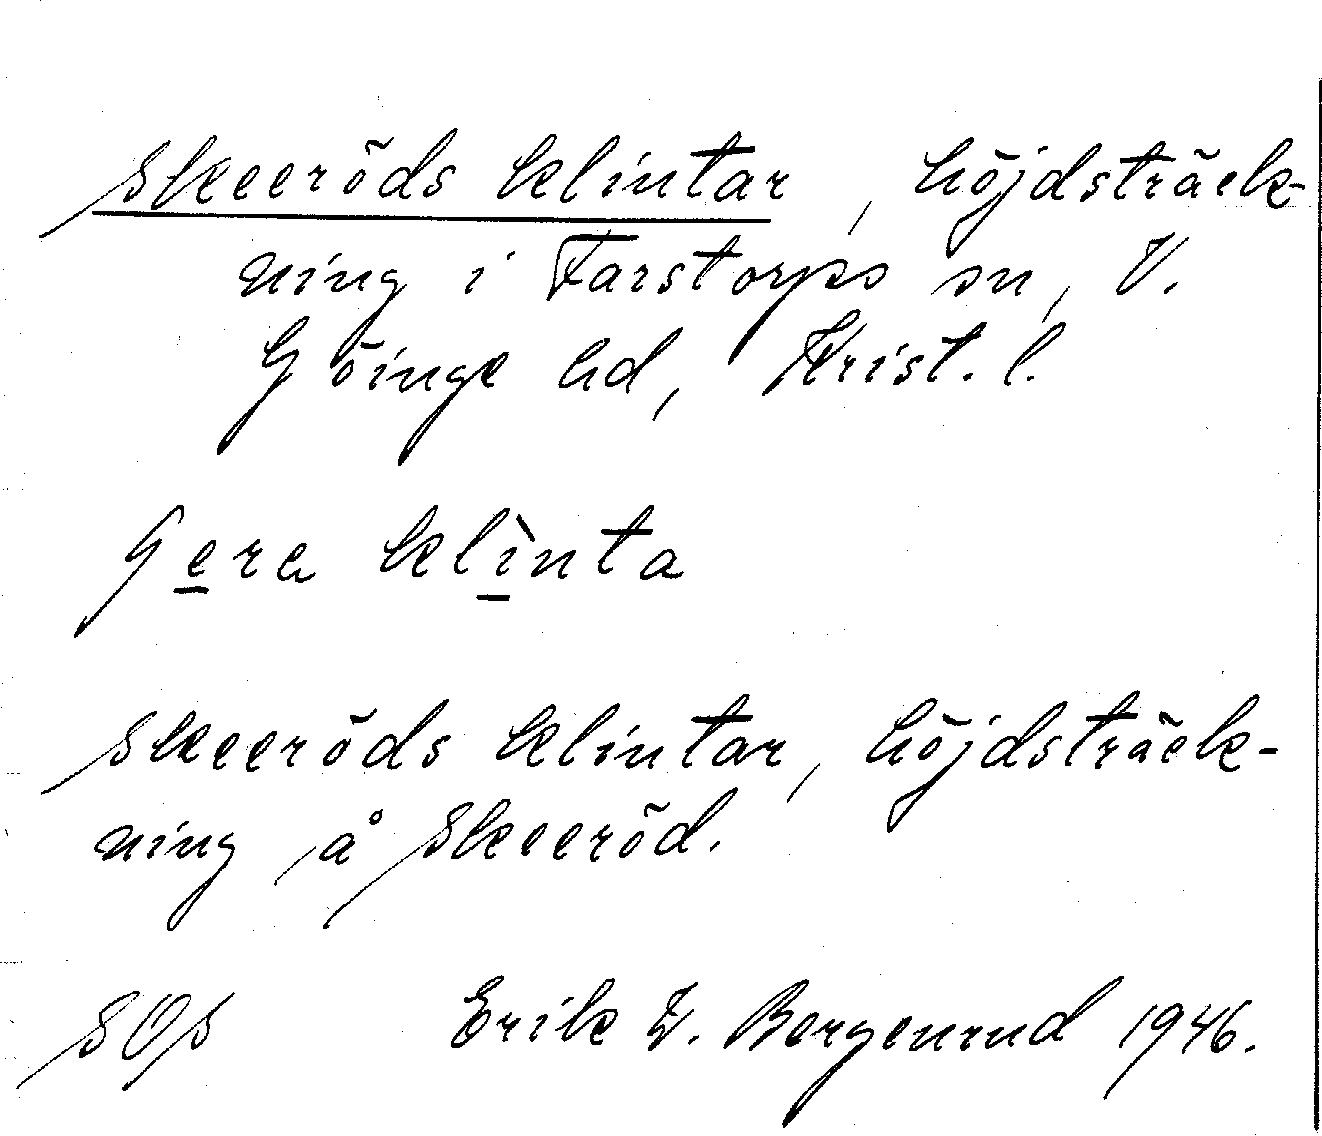 Skeeröds klintar, höjdsträck-
ning i Farstorps sn, V.
Göinge hd, Krist. l.
Gera klìnta
Skeeröds klintar, höjdsträck-
ning å Skeeröd.
SOs Erik W. Bergenrud 1946.